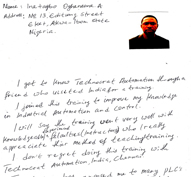 Name: Inetughe Oghenemine A
Address: NO 13, Edikong Street
Eket, Akwa-Ibom State
Nigeria.
I got to know Technocrat Automation through a
friend who visited India for a training
I joined this training to improve my knowledge
in Industrial Automation and control.
I will say this training went very well with
knowledgeable facilitator/instructor who I really
appreciate that method of teaching/training.
I don't regret doing this training with
Technocrat Automation, India, Chennai
me to many PLC's